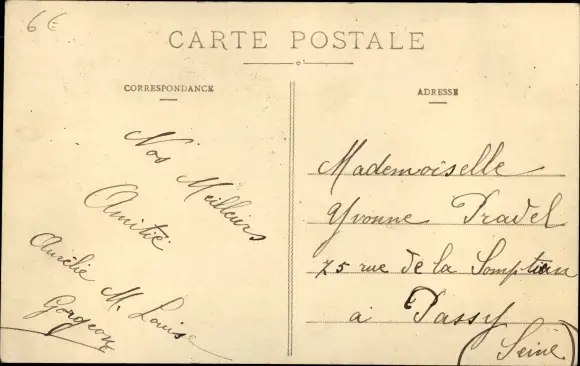 6€
CARTE POSTALE
CORRESPONDANCE
ADRESSE
Nos Meilleurs
Amitié
Aurélie M. Louise
Gorgeon
Mademoiselle
Yvonne Pradel
75 rue de la Somptian
à Passy
(Seine)